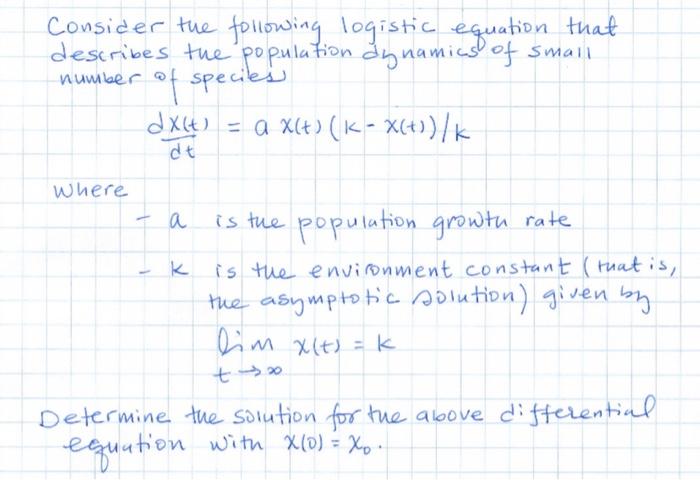 Consider the following logistic equation that
describes the population dynamics of small
number of species
dx(t)/dt = a x(t) (k - x(t))/k
where
- a is the population growth rate
- k is the environment constant (that is,
the asymptotic solution) given by
lim x(t) = k
t → ∞
Determine the solution for the above differential
equation with x(0) = x₀.